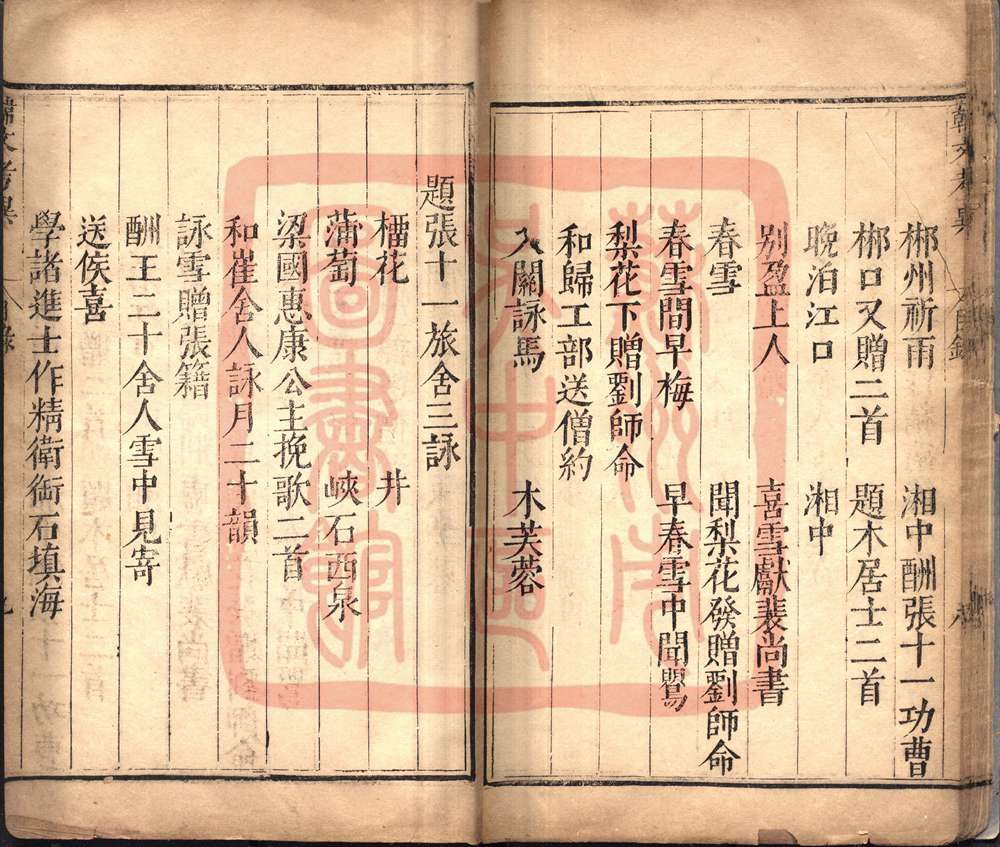 郴州祈雨　湘中酬張十一功曹
郴口又贈二首　題木居士二首
晚泊江口　湘中
别盈上人　喜雪獻裴尚書
春雪　聞梨花發贈劉師命
春雪間早梅　早春雪中聞鸎
梨花下贈劉師命
和歸工部送僧約
入關詠馬　木芙蓉
題張十一旅舍三詠
橊花　井
蒲萄　峽石西泉
梁國惠康公主挽歌二首
和崔舍人詠月二十韻
詠雪贈張籍
酬王二十舍人雪中見寄
送侯喜
學諸進士作精衛銜石填海